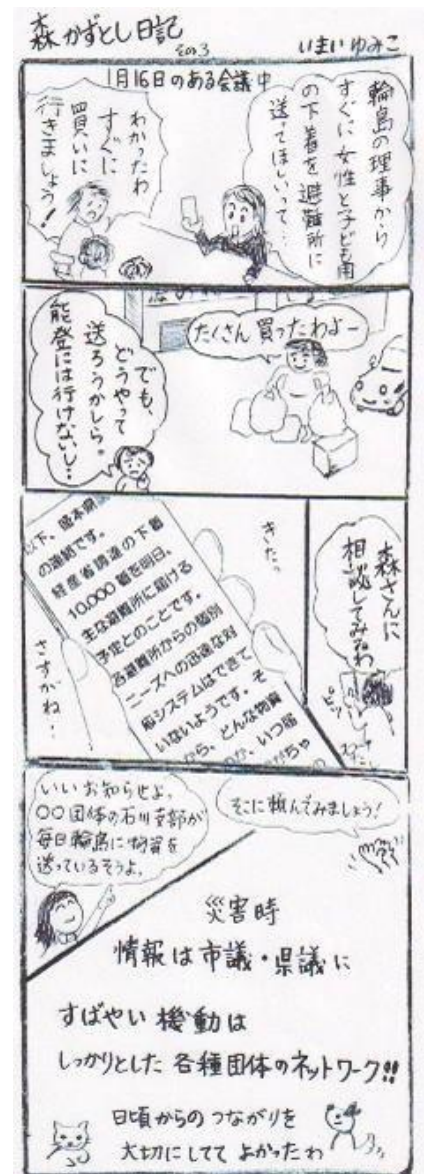 森かずとし日記
その3
いまいゆみこ
1月16日のある会議中
輪島の理事から
すぐに女性と子ども用
の下着を避難所に
送ってほしいって…
わかったわ
すぐに
買いに
行きましょう!
たくさん買ったわよー
でも、
どうやって
送ろうかしら。
能登には行けないし…
森さんに
相談してみるわ
ピッ
きたっ
以下、盛本県議
の連絡です。
経産省調達の下着
10,000着を明日、
主な避難所に届ける
予定とのことです。
る避難所からの個別
ニーズへの迅速な対
応システムはできて
いないようです。そ
から、どんな物資
のか、いつ届
がちゃ
さすがね…
いいお知らせよ。
○○団体の石川支部が
毎日輪島に物資を
送っているそうよ。
そこに頼んでみましょう!
災害時
情報は市議・県議に
すばやい機動は
しっかりとした各種団体のネットワーク!!
日頃からのつながりを
大切にしててよかったわ